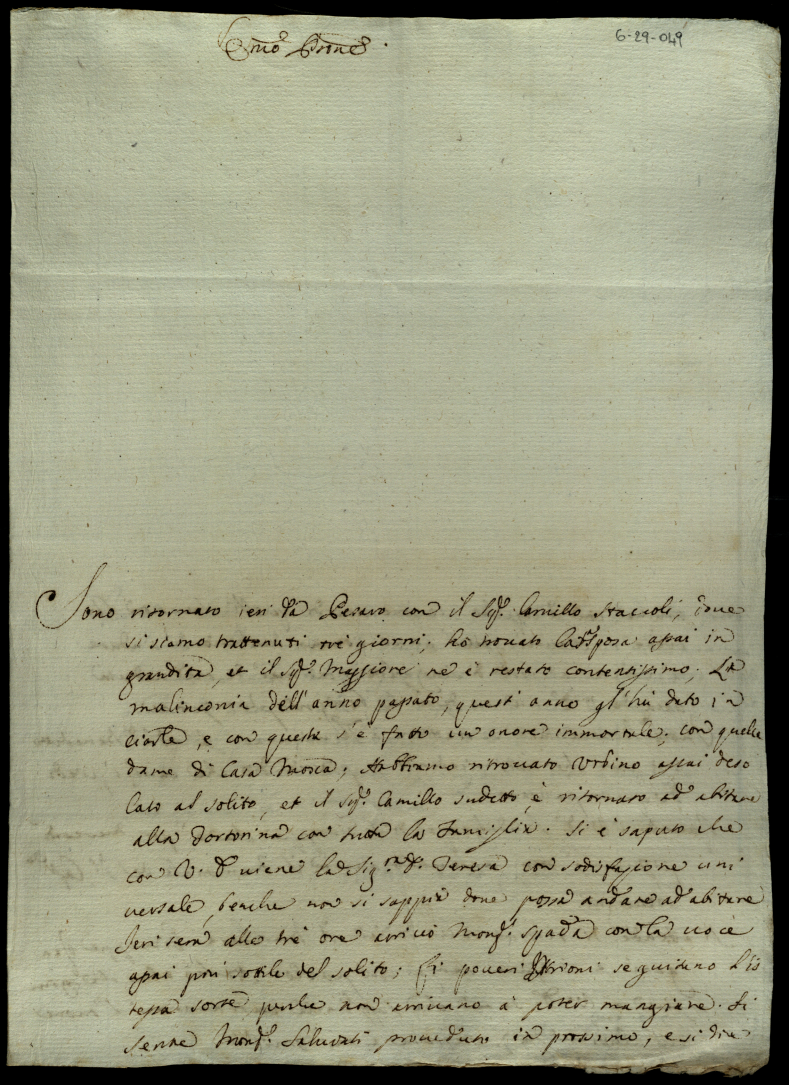 6-29-049
Sono ritornato ieri da Pesaro con il Sig.r Camillo Staccoli, doue
si siamo trattenuti trè giorni; ho trouato la Sposa assai in
grandita, et il Sig.r Maggiore ne è restato contentissimo; La
malinconia dell'anno passato, quest'anno gl'hà dato in
ciarle, e con queste s'è fatto un onore immortale, con quelle
dame di Casa Mosca; Habbiamo ritrouato Urbino assai deso
lato al solito, et il Sig.r Camillo sudetto è ritornato ad abitare
alla Tortorina con tutta la Famiglia. Si è saputo che
con V. uiene la Sig.ra D. Teresa con sodisfazione uni
uersale, benche non si sappia doue possa andare ad abitare
Ieri sera alle trè ore arriuò Mons.r Spada con la uoce
assai più sottile del solito; li poueri seguitano l'is
tessa sorte perche non arriuano à poter mangiare. Si
sente Mons.r Saluiati proueduto in prossimo, e si dice